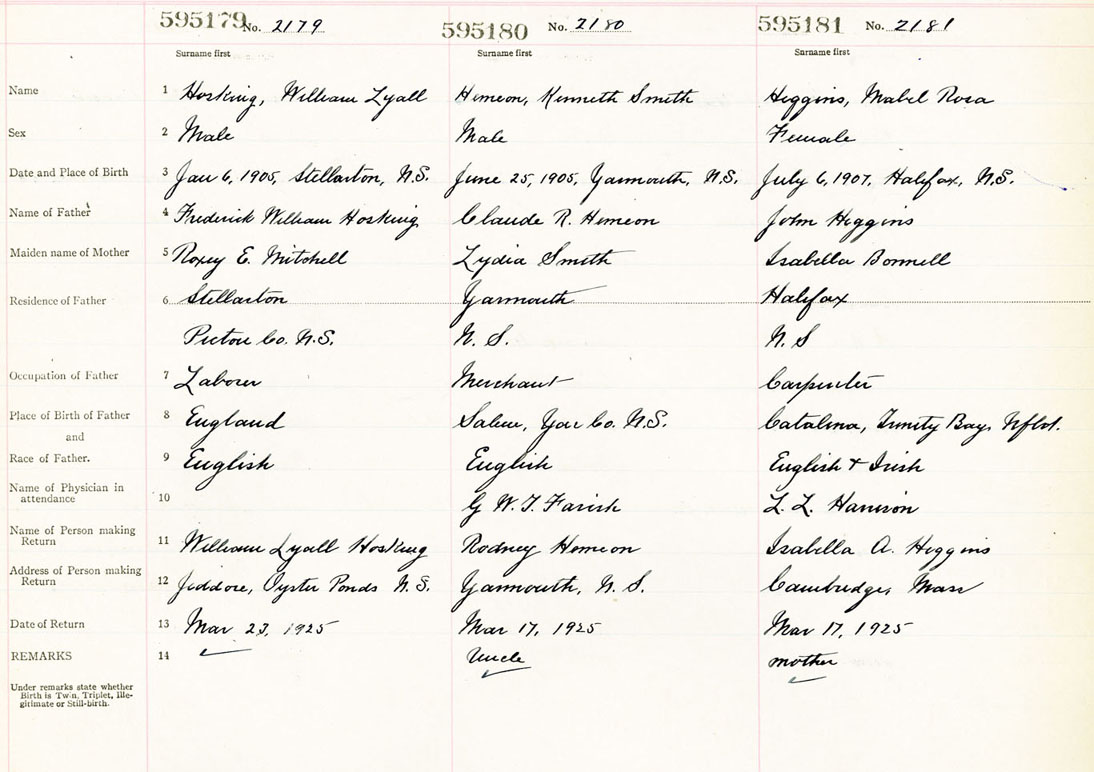 595179 No. 2179 595180 No. 2180 595181 No. 2181
Surname first Surname first Surname first
Name 1 Hosking, William Lyall Hemeon, Kenneth Smith Higgins, Mabel Rosa
Sex 2 Male Male Female
Date and Place of Birth 3 Jan 6, 1905, Stellarton, N.S. June 25, 1905, Yarmouth, N.S. July 6, 1907, Halifax, N.S.
Name of Father 4 Frederick William Hosking Claude R. Hemeon John Higgins
Maiden name of Mother 5 Roxey E. Mitchell Lydia Smith Isabella Bonnell
Residence of Father 6 Stellarton Yarmouth Halifax
Pictou Co. N.S. N. S. N. S
Occupation of Father 7 Laborer Merchant Carpenter
Place of Birth of Father 8 England Salem, Yar Co. N.S. Catalina, Trinity Bay, Nfld.
and
Race of Father. 9 English English English + Irish
Name of Physician in
attendance 10 G W. T. Farish L. L. Harrison
Name of Person making
Return 11 William Lyall Hosking Rodney Hemeon Isabella A. Higgins
Address of Person making
Return 12 Jeddore, Oyster Ponds N.S. Yarmouth, N. S. Cambridge, Mass
Date of Return 13 Mar 23, 1925 Mar 17, 1925 Mar 17, 1925
REMARKS 14 Uncle mother
Under remarks state whether
Birth is Twin, Triplet, Ille-
gitimate or Still-birth.